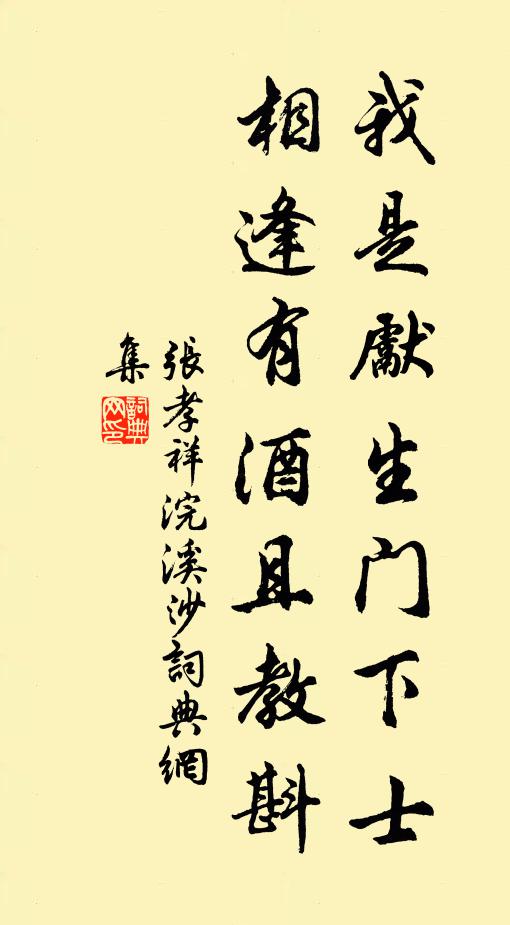 我是獻生門下士
相逢有酒且教斟
張孝祥浣溪沙詞典網
集
詞典网印